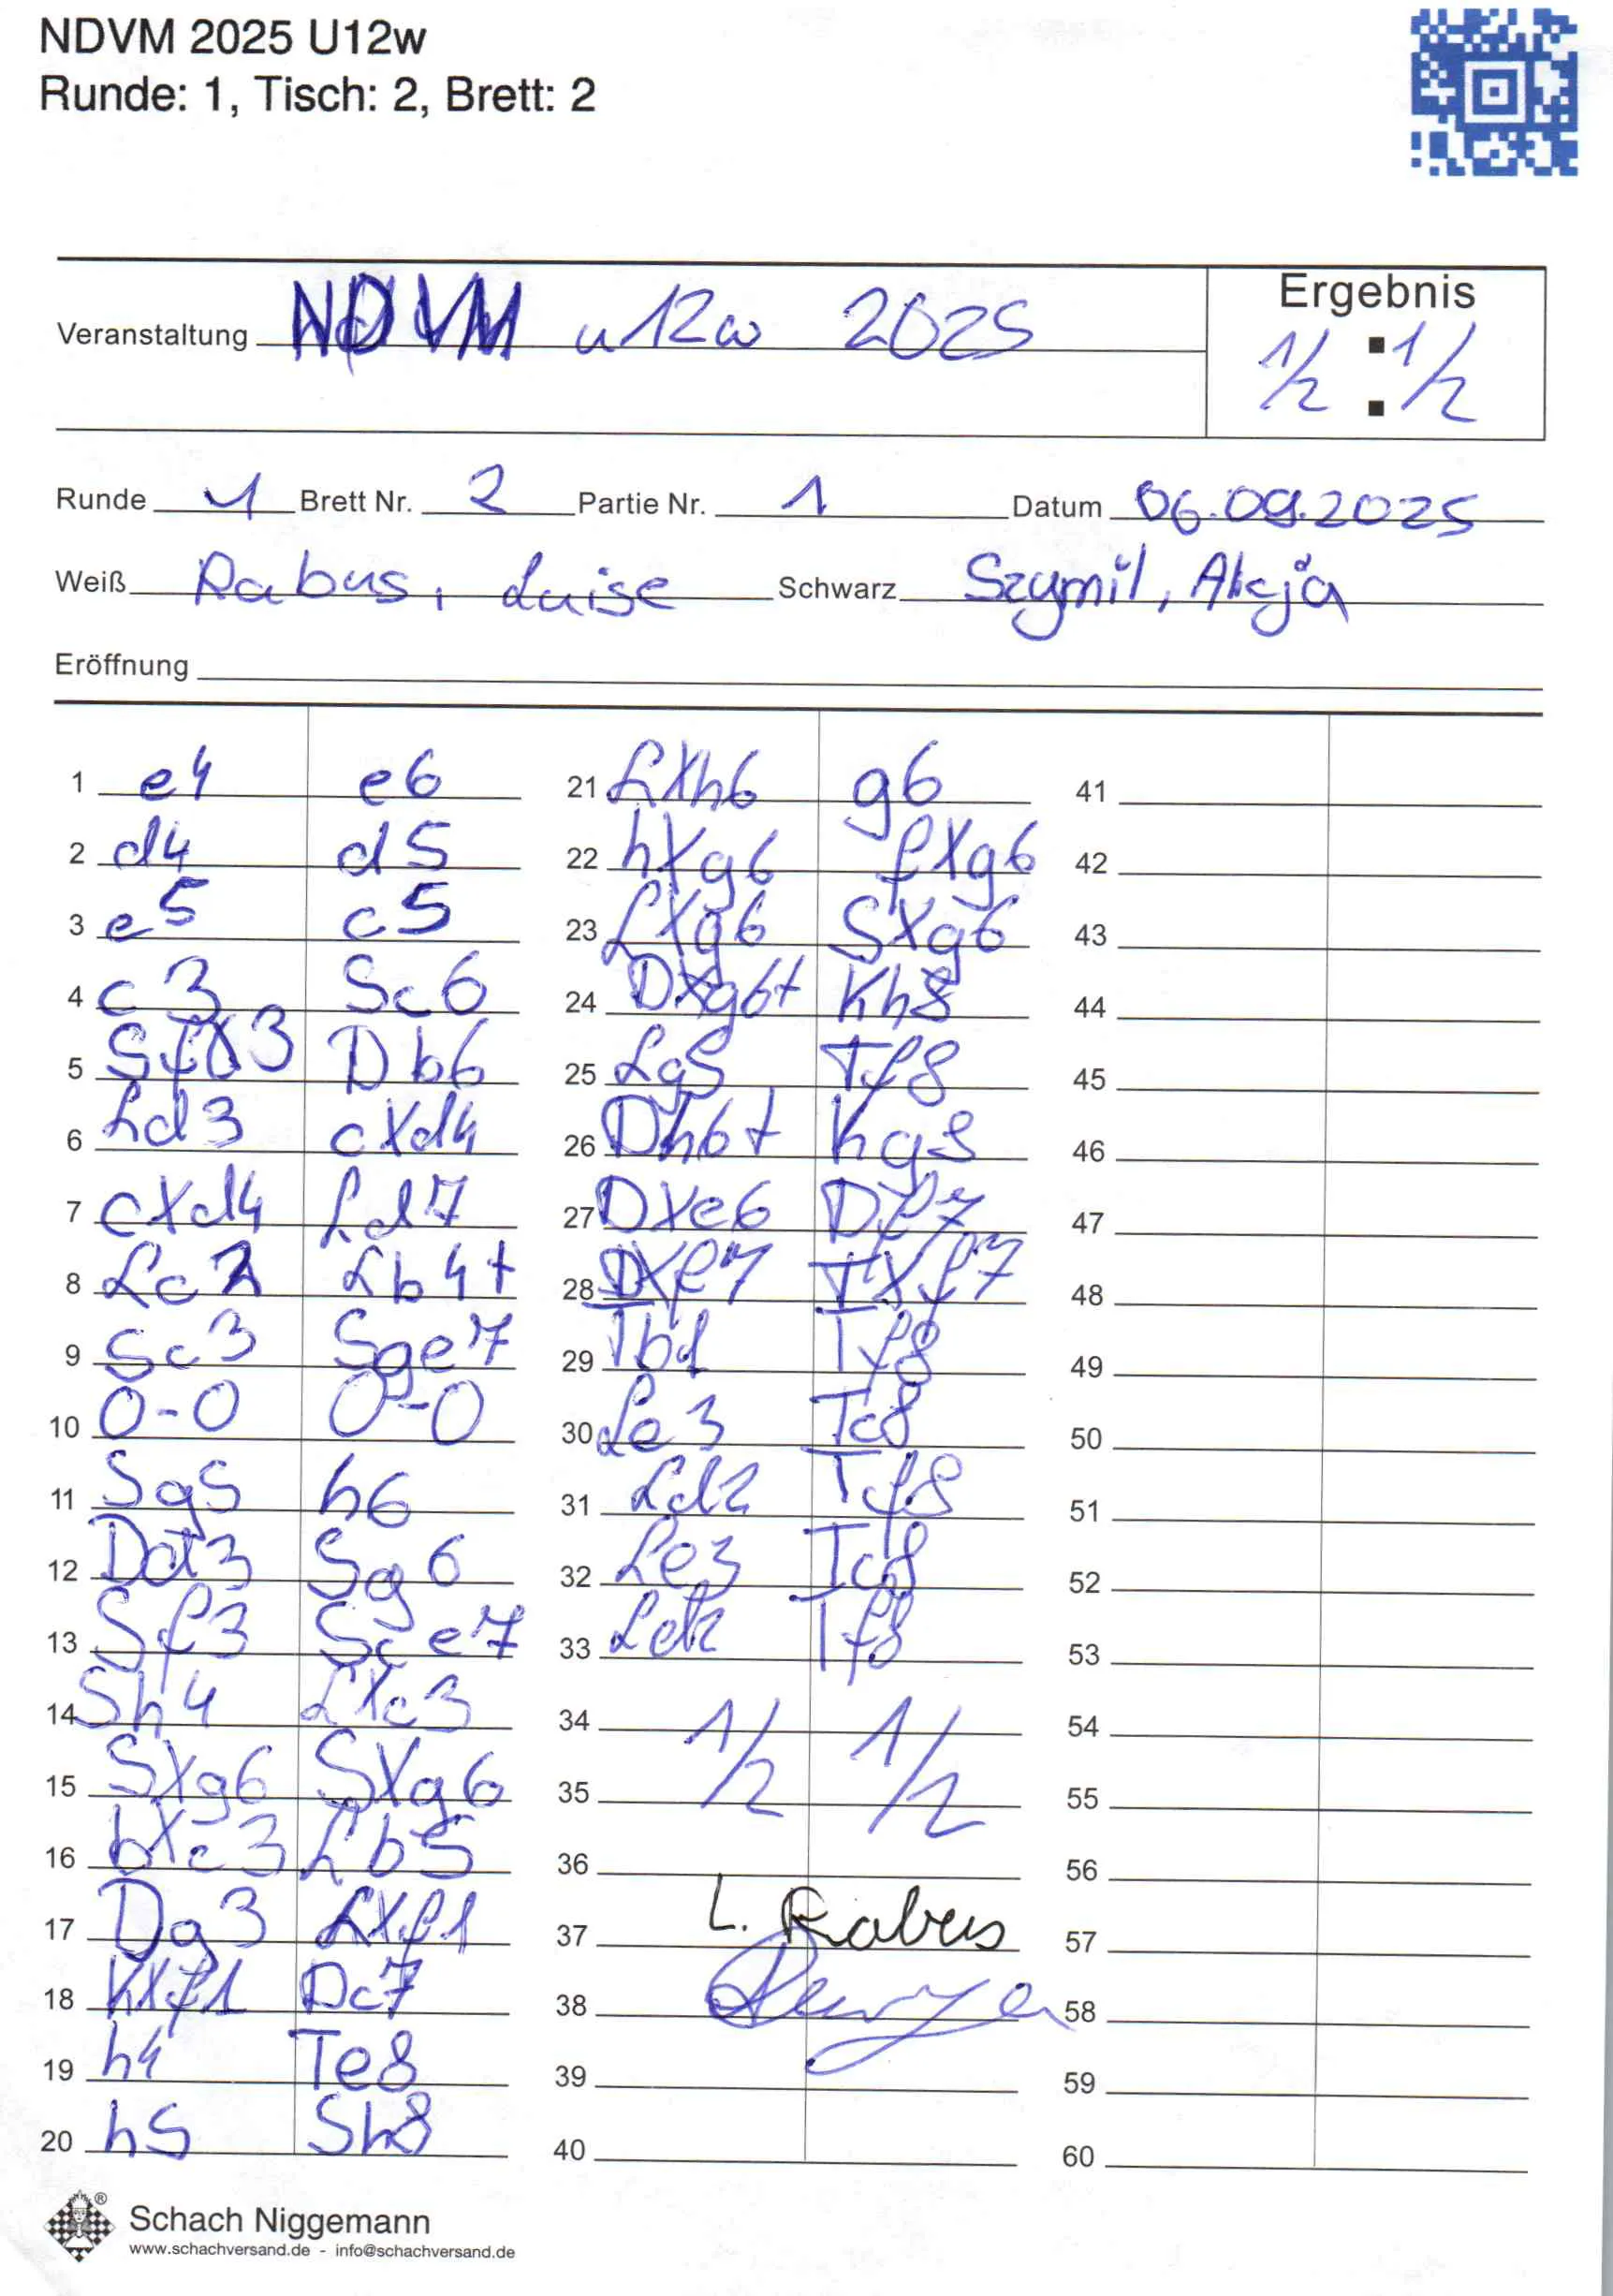 NDVM 2025 U12w
Runde: 1, Tisch: 2, Brett: 2
Veranstaltung NDVM u12w 2025
Ergebnis
1/2 : 1/2
Runde 1 Brett Nr. 2 Partie Nr. 1 Datum 06.09.2025
Weiß Rabus, Luise Schwarz Szymil, Alicja
Eröffnung
1 e4 e6
2 d4 d5
3 e5 c5
4 c3 Sc6
5 Sf3 Db6
6 Ld3 cXd4
7 cXd4 Ld7
8 Lc2 Lb4+
9 Sc3 Sge7
10 0-0 0-0
11 Sg5 h6
12 Dd3 Sg6
13 Sf3 Sce7
14 Sh4 LXc3
15 SXg6 SXg6
16 bXc3 Lb5
17 Dg3 LXf1
18 KXf1 Dc7
19 h4 Te8
20 h5 Sh8
21 LXh6 g6
22 hXg6 fXg6
23 LXg6 SXg6
24 DXg6+ Kh8
25 Lg5 Tf8
26 Dh6+ Kg8
27 DXe6 Df7
28 DXf7 TXf7
29 Tb1 Tf8
30 Le3 Tc8
31 Ld2 Tf8
32 Le3 Tc8
33 Ld2 Tf8
34 1/2 1/2
35
36
37 L. Rabus
38
39
40
41
42
43
44
45
46
47
48
49
50
51
52
53
54
55
56
57
58
59
60
Schach Niggemann
www.schachversand.de - info@schachversand.de